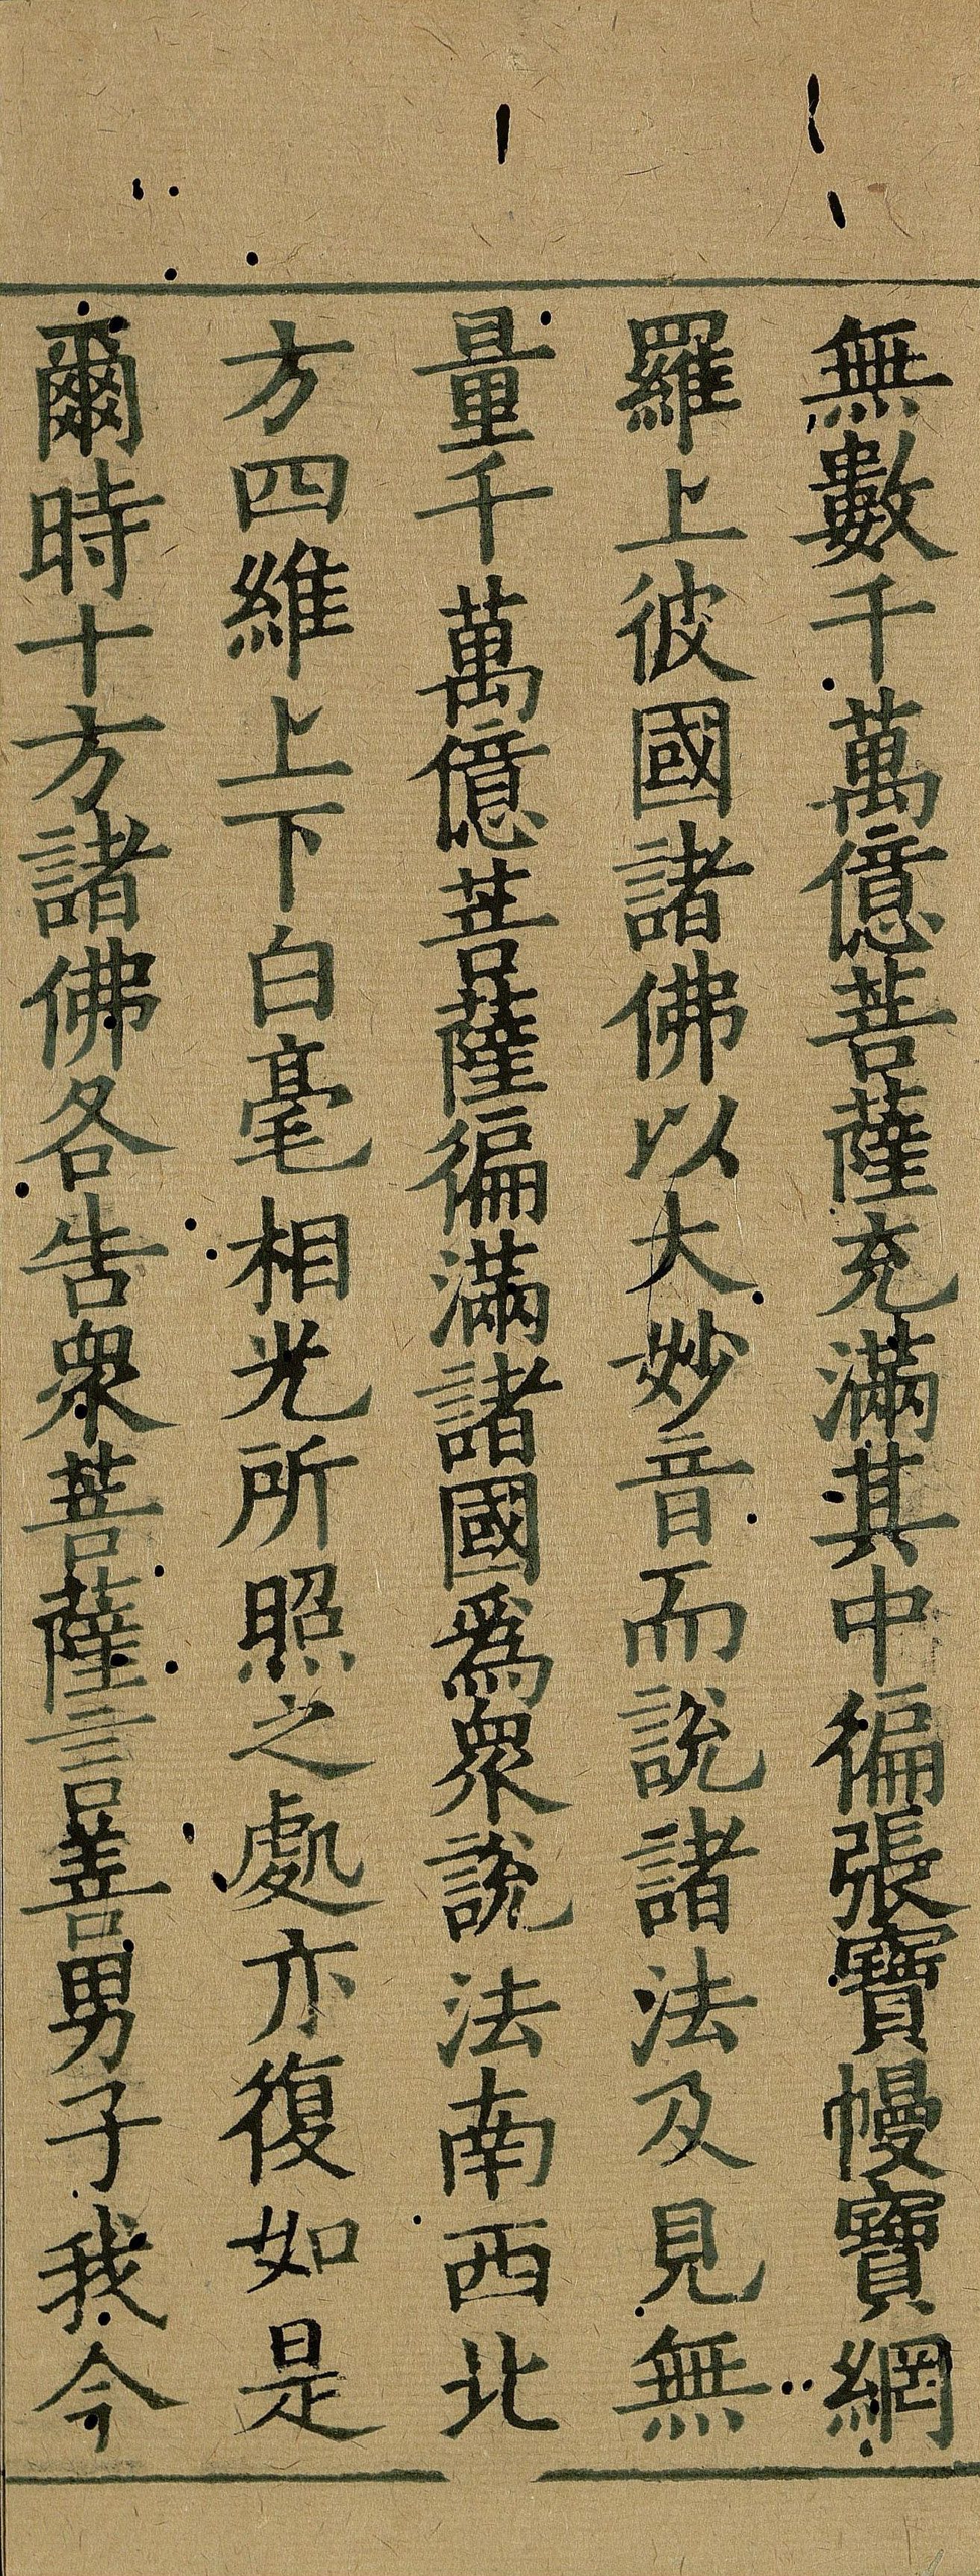 無數千萬億菩薩充滿其中徧張寶幔寶網
羅上彼國諸佛以大妙音而說諸法及見無
量千萬億菩薩徧滿諸國爲衆說法南西北
方四維上下白毫相光所照之處亦復如是
爾時十方諸佛各告衆菩薩言善男子我今